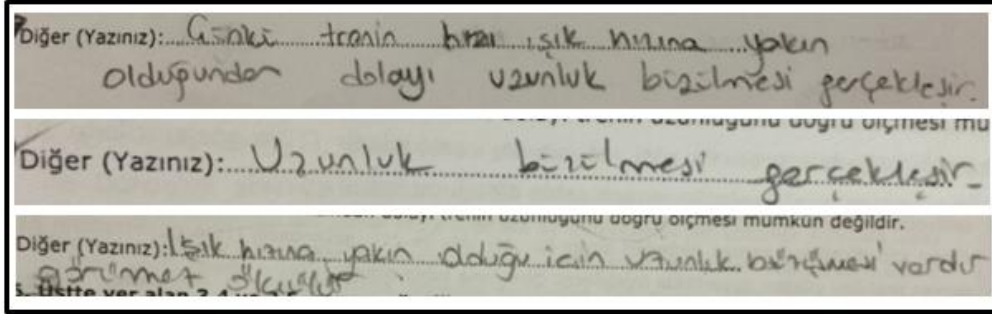 Diğer (Yazınız): Çünkü trenin hızı ışık hızına yakın
olduğundan dolayı uzunluk büzülmesi gerçekleşir.
trenin uzunluğunu doğru ölçmesi mü
Diğer (Yazınız): Uzunluk büzülmesi gerçekleşir.
dolayı trenin uzunluğunu doğru ölçmesi mümkün değildir.
Diğer (Yazınız): Işık hızına yakın olduğu için uzunluk büzülmesi vardır
Üstte yer alan